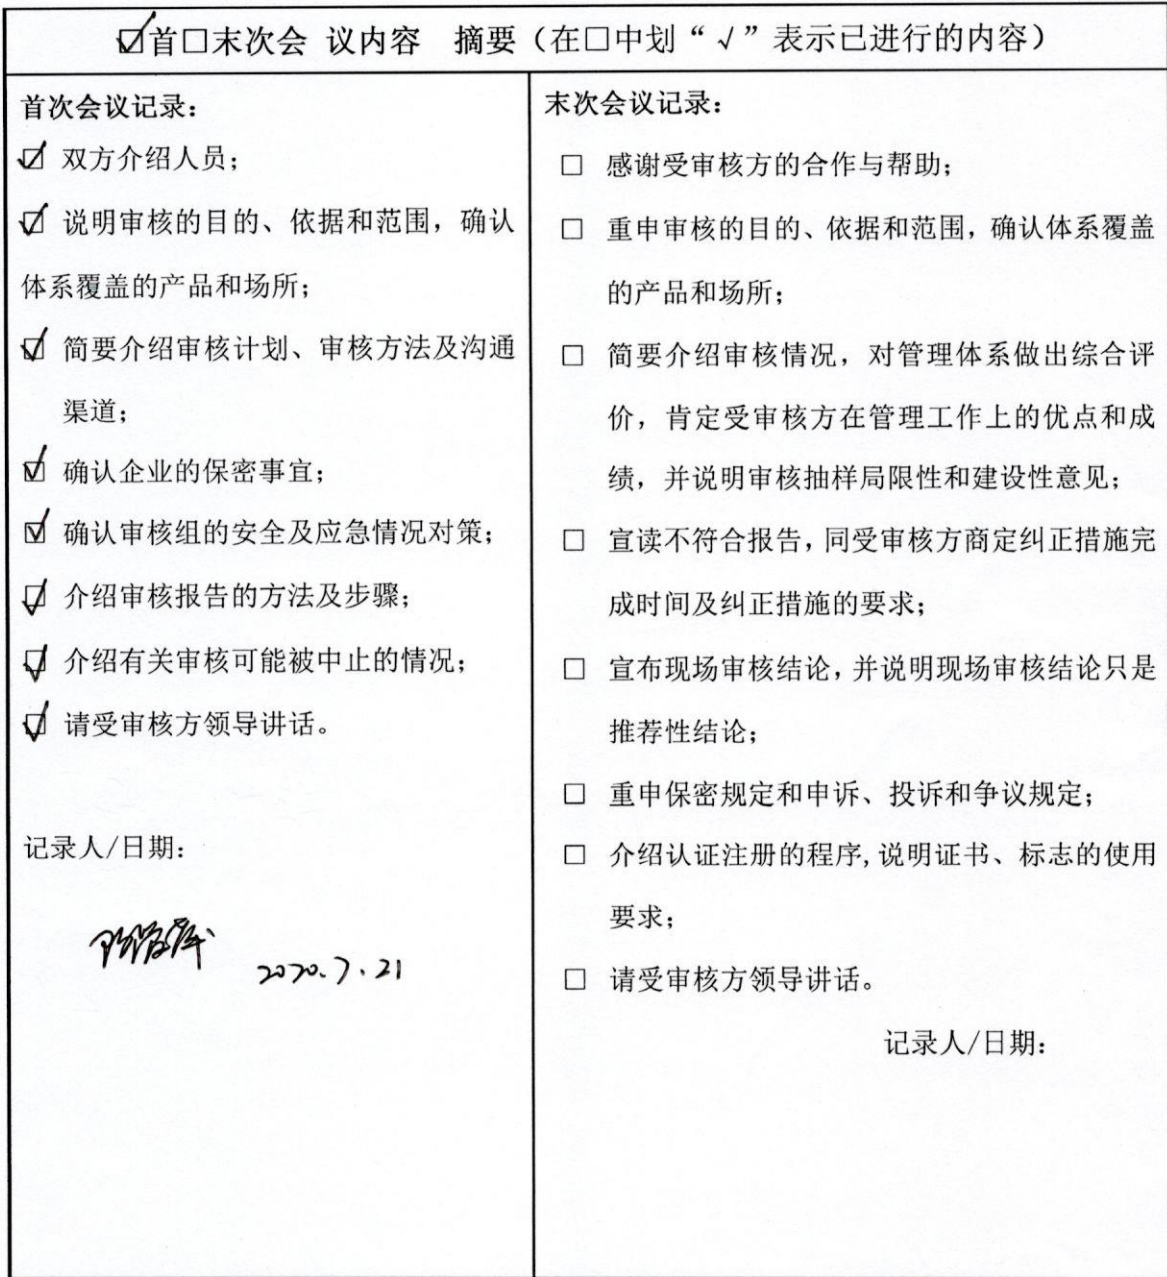 ☑首□末次会 议内容 摘要（在□中划“√”表示已进行的内容）
首次会议记录：
☑ 双方介绍人员；
☑ 说明审核的目的、依据和范围，确认
体系覆盖的产品和场所；
☑ 简要介绍审核计划、审核方法及沟通
渠道；
☑ 确认企业的保密事宜；
☑ 确认审核组的安全及应急情况对策；
☑ 介绍审核报告的方法及步骤；
☑ 介绍有关审核可能被中止的情况；
☑ 请受审核方领导讲话。
记录人/日期：
2020.7.21
末次会议记录：
□ 感谢受审核方的合作与帮助；
□ 重申审核的目的、依据和范围，确认体系覆盖
的产品和场所；
□ 简要介绍审核情况，对管理体系做出综合评
价，肯定受审核方在管理工作上的优点和成
绩，并说明审核抽样局限性和建设性意见；
□ 宣读不符合报告，同受审核方商定纠正措施完
成时间及纠正措施的要求；
□ 宣布现场审核结论，并说明现场审核结论只是
推荐性结论；
□ 重申保密规定和申诉、投诉和争议规定；
□ 介绍认证注册的程序,说明证书、标志的使用
要求；
□ 请受审核方领导讲话。
记录人/日期：